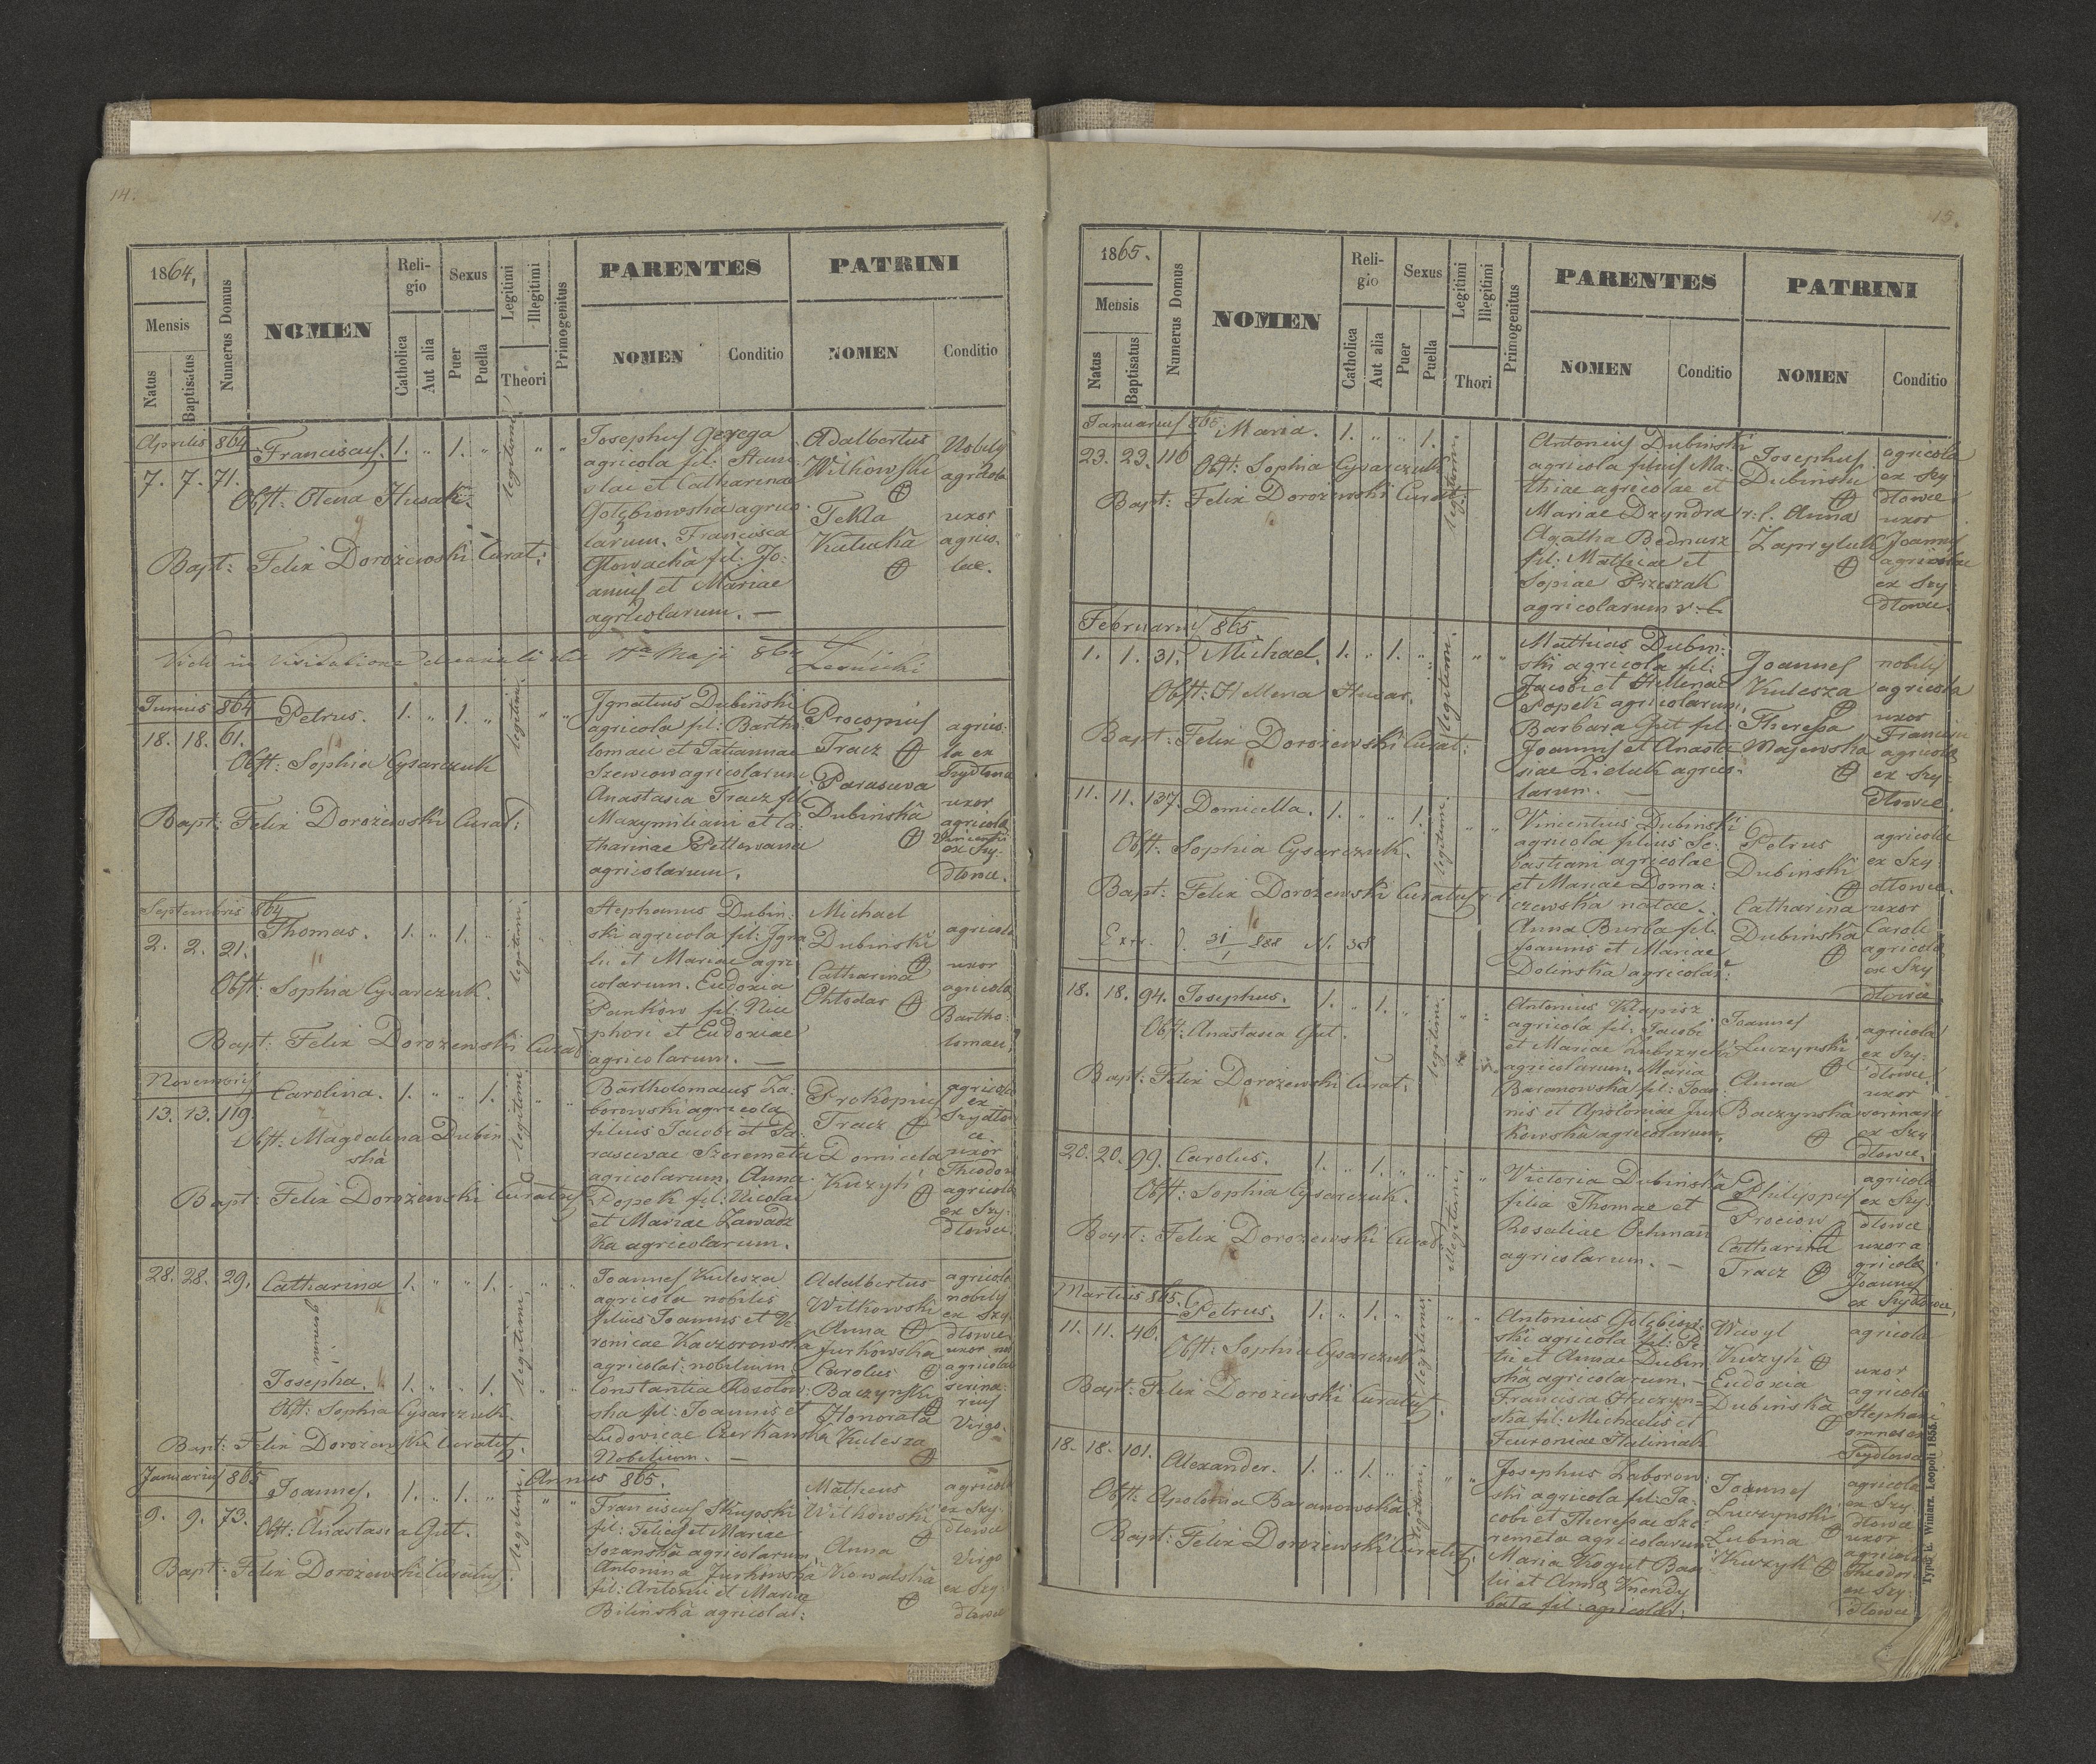 14.
1864,
Mensis
Natus
Baptisatus
Numerus Domus
NOMEN
Religio
Catholica
Aut alia
Sexus
Puer
Puella
Legitimi
Illegitimi
Theori
Primogenitus
PARENTES
NOMEN
Conditio
PATRINI
NOMEN
Conditio
Aprilis 864
7. 7. 71.
Franciscus. 1. " 1. "
Obst: Olena Husak.
Bapt: Felix Dorożewski Curat:
legitimi.
Josephus Gerega
agricola fil:
et Catharinae
Gołębiowska agrico
larum. Francisca
Głowacka fil: Jo:
annis et Mariae
agricolarum. —
Adalbertus
Witkowski
Tekla
Kulucka
Nobilis
agricola
uxor
agrico-
lae.
Vidi in visitatione decanali die 17a Maji 864
Junius 864
18. 18. 61.
Petrus. 1. " 1. "
Obst: Sophia Cysarczuk
Bapt: Felix Dorożewski Curat:
legitimi.
Ignatius Dubiński
agricola fil: Bartho
lomaei et Tatiannae
Szewcow agricolarum
Anastasia Tracz fil:
Maxymiliani et Ca
tharinae Petlewana
agricolarum.
Procopius
Tracz
Parasceva
Dubińska
agrico-
la ex
Szydłowce
uxor
agricola
ex Szy-
dłowce.
Septembris 864
2. 2. 21.
Thomas. 1. " 1. "
Obst: Sophia Cysarczuk.
Bapt: Felix Dorożewski Curat
legitimi.
Stephanus Dubiń:
ski agricola fil: Igna
tii et Mariae agri
colarum. Eudoxia
Pańkow fil: Nice
phori et Eudoxiae
agricolarum. —
Michael
Dubiński
Catharina
Chłodar
agricola
uxor
agricola
Bartho:
lomaei
Novembris
13. 13. 119.
Carolina. 1. " " 1.
Obst: Magdalena Dubiń
ska
Bapt: Felix Dorożewski Curatus
legitimi.
Bartholomaeus Za:
borowski agricola
filius Jacobi et Pa
rascevae Szeremeta
agricolarum. Anna
Popek fil: Nicolai
et Mariae Zawadz
ka agricolarum.
Prokopius
Tracz
Domicela
Kuzyk
agricola
ex
Szydłow
ce
uxor
Theodori
agricola
ex Szy-
dłowce.
28. 28. 29.
Catharina 1. " " 1.
Josepha. 1. " " 1.
Obst: Sophia Cysarczuk.
Bapt: Felix Dorożewski Curatus.
legitimi.
Joannes Kulesza
agricola nobilis
filius Joannis et Ve
ronicae Kaczorowska
agricolar: nobilium.
Constantia Rosołow
ska fil: Joannis et
Ludovicae Czerkawska
Nobilium. —
Adalbertus
Witkowski
Anna
Jurkowska
Carolus
Baczyński
Honorata
Kulesza
agricola
nobilis
ex Szy-
dłowce
uxor
agricolae
Virgo.
Januarius 865
Annus 865.
9. 9. 73.
Joannes. 1. " 1. "
Obst: Anastasia Gut.
Bapt: Felix Dorożewski Curatus.
legitimi
Franciscus Skupski
fil: Felicis et Mariae
Sozańska agricolarum
Antonina Jurkowska
fil: Antonii et Mariae
Bilińska agricolar:
Matheus
Witkowski
Anna
Kowalska
agricola
ex Szy-
dłowce
Virgo
ex Szy-
dłowce
15.
1865.
Mensis
Natus
Baptisatus
Numerus Domus
NOMEN
Religio
Catholica
Aut alia
Sexus
Puer
Puella
Legitimi
Illegitimi
Thori
Primogenitus
PARENTES
NOMEN
Conditio
PATRINI
NOMEN
Conditio
Januarius 865
23. 23. 116
Maria. 1. " " 1.
Obst: Sophia Cysarczuk
Bapt: Felix Dorożewski Curat:
legitimi.
Antonius Dubiński
agricola filius Ma-
thiae agricolae et
Mariae Dzyndra r: l.
Agatha Bednarz
fil: Mathiae et
Sopiae Przeszak
agricolarum r: l.
Josephus
Dubiński
Anna
Zaprytuk
agricola
ex Szy
dłowce
uxor
Joannis
agricolae
ex Szy-
dłowce.
Februarius 865
1. 1. 31.
Michael. 1. " 1. "
Obst: Hellena Husar.
Bapt: Felix Dorożewski Curat:
legitimi.
Matthias Dubiń:
ski agricola fil:
Jacobi et Hellenae
Popek agricolarum.
Barbara Gut fil:
Joannis et Anasta
siae Zieluk agrico-
larum. —
Joannes
Kulesza
Theresa
Majewska
nobilis
agricola
uxor
Francisci
agricola
ex Szy-
dłowce.
11. 11. 137.
Domicella. 1. " " 1.
Obst: Sophia Cysarczuk.
Bapt: Felix Dorożewski Curatus r: l
Extr. d. 31/1 888 N. 38
legitimi.
Vincentius Dubiński
agricola filius Se:
bastiani agricolae
et Mariae Doma:
czewska natae.
Anna Burba fil:
Joannis et Mariae
Dolinska agricolar:
Petrus
Dubinski
Catharina
Dubinska
agricola
ex Szy-
dłowce.
uxor
Caroli
agricola
ex Szy
dłowce
18. 18. 94.
Josephus. 1. " 1. "
Obst: Anastasia Gut.
Bapt: Felix Dorożewski Curat:
legitimi.
Antonius Kłapisz
agricola fil: Jacobi
et Mariae Lubczycka
agricolarum. Maria
Baranowska fil: Joan
nis et Apoloniae Jur
kowska agricolarum.
Joannes
Luczynski
Anna
Baczynska
agricola
ex Szy:
dłowce
uxor
ex Szy
dłowce.
20. 20. 99.
Carolus. 1. " 1. "
Obst: Sophia Cysarczuk.
Bapt: Felix Dorożewski Curat
illegitimi.
Victoria Dubińska
filia Thomae et
Rosaliae Ochman
agricolarum. —
Philippus
Prociow
Catharina
Tracz
agricola
ex Szy-
dłowce
uxor a
gricola
Joannis
ex Szydłowce.
Martius 865.
11. 11. 46.
Petrus. 1. " 1. "
Obst: Sophia Cysarczuk
Bapt: Felix Dorożewski Curatus.
legitimi
Antonius Gołębiow:
ski agricola fil: Pe
tri et Annae Dubiń
ska agricolarum. —
Francisca Huczyń=
ska fil: Michaelis et
Feuroniae Haliniak
Wasyl
Kuzyk
Eudoxia
Dubińska
agricola
uxor
agricola
Stephani
omnes ex
Szydłowce
18. 18. 101.
Alexander. 1. " 1. "
Obst: Apolonia Baranowska
Bapt: Felix Dorożewski Curatus.
legitimi.
Josephus Zaborow:
ski agricola fil: Ja:
cobi et Theresae Sze:
remeta agricolarum
Maria Kogut Basi
lii et Anna Knendy
bała fil: agricolar:
Joannes
Luczynski
Lubina
Kuzyk
agricola
ex Szy-
dłowce
uxor
agricola
Theodor
ex Szy-
dłowce
Typis E. Winiarz. Leopoli 1855.